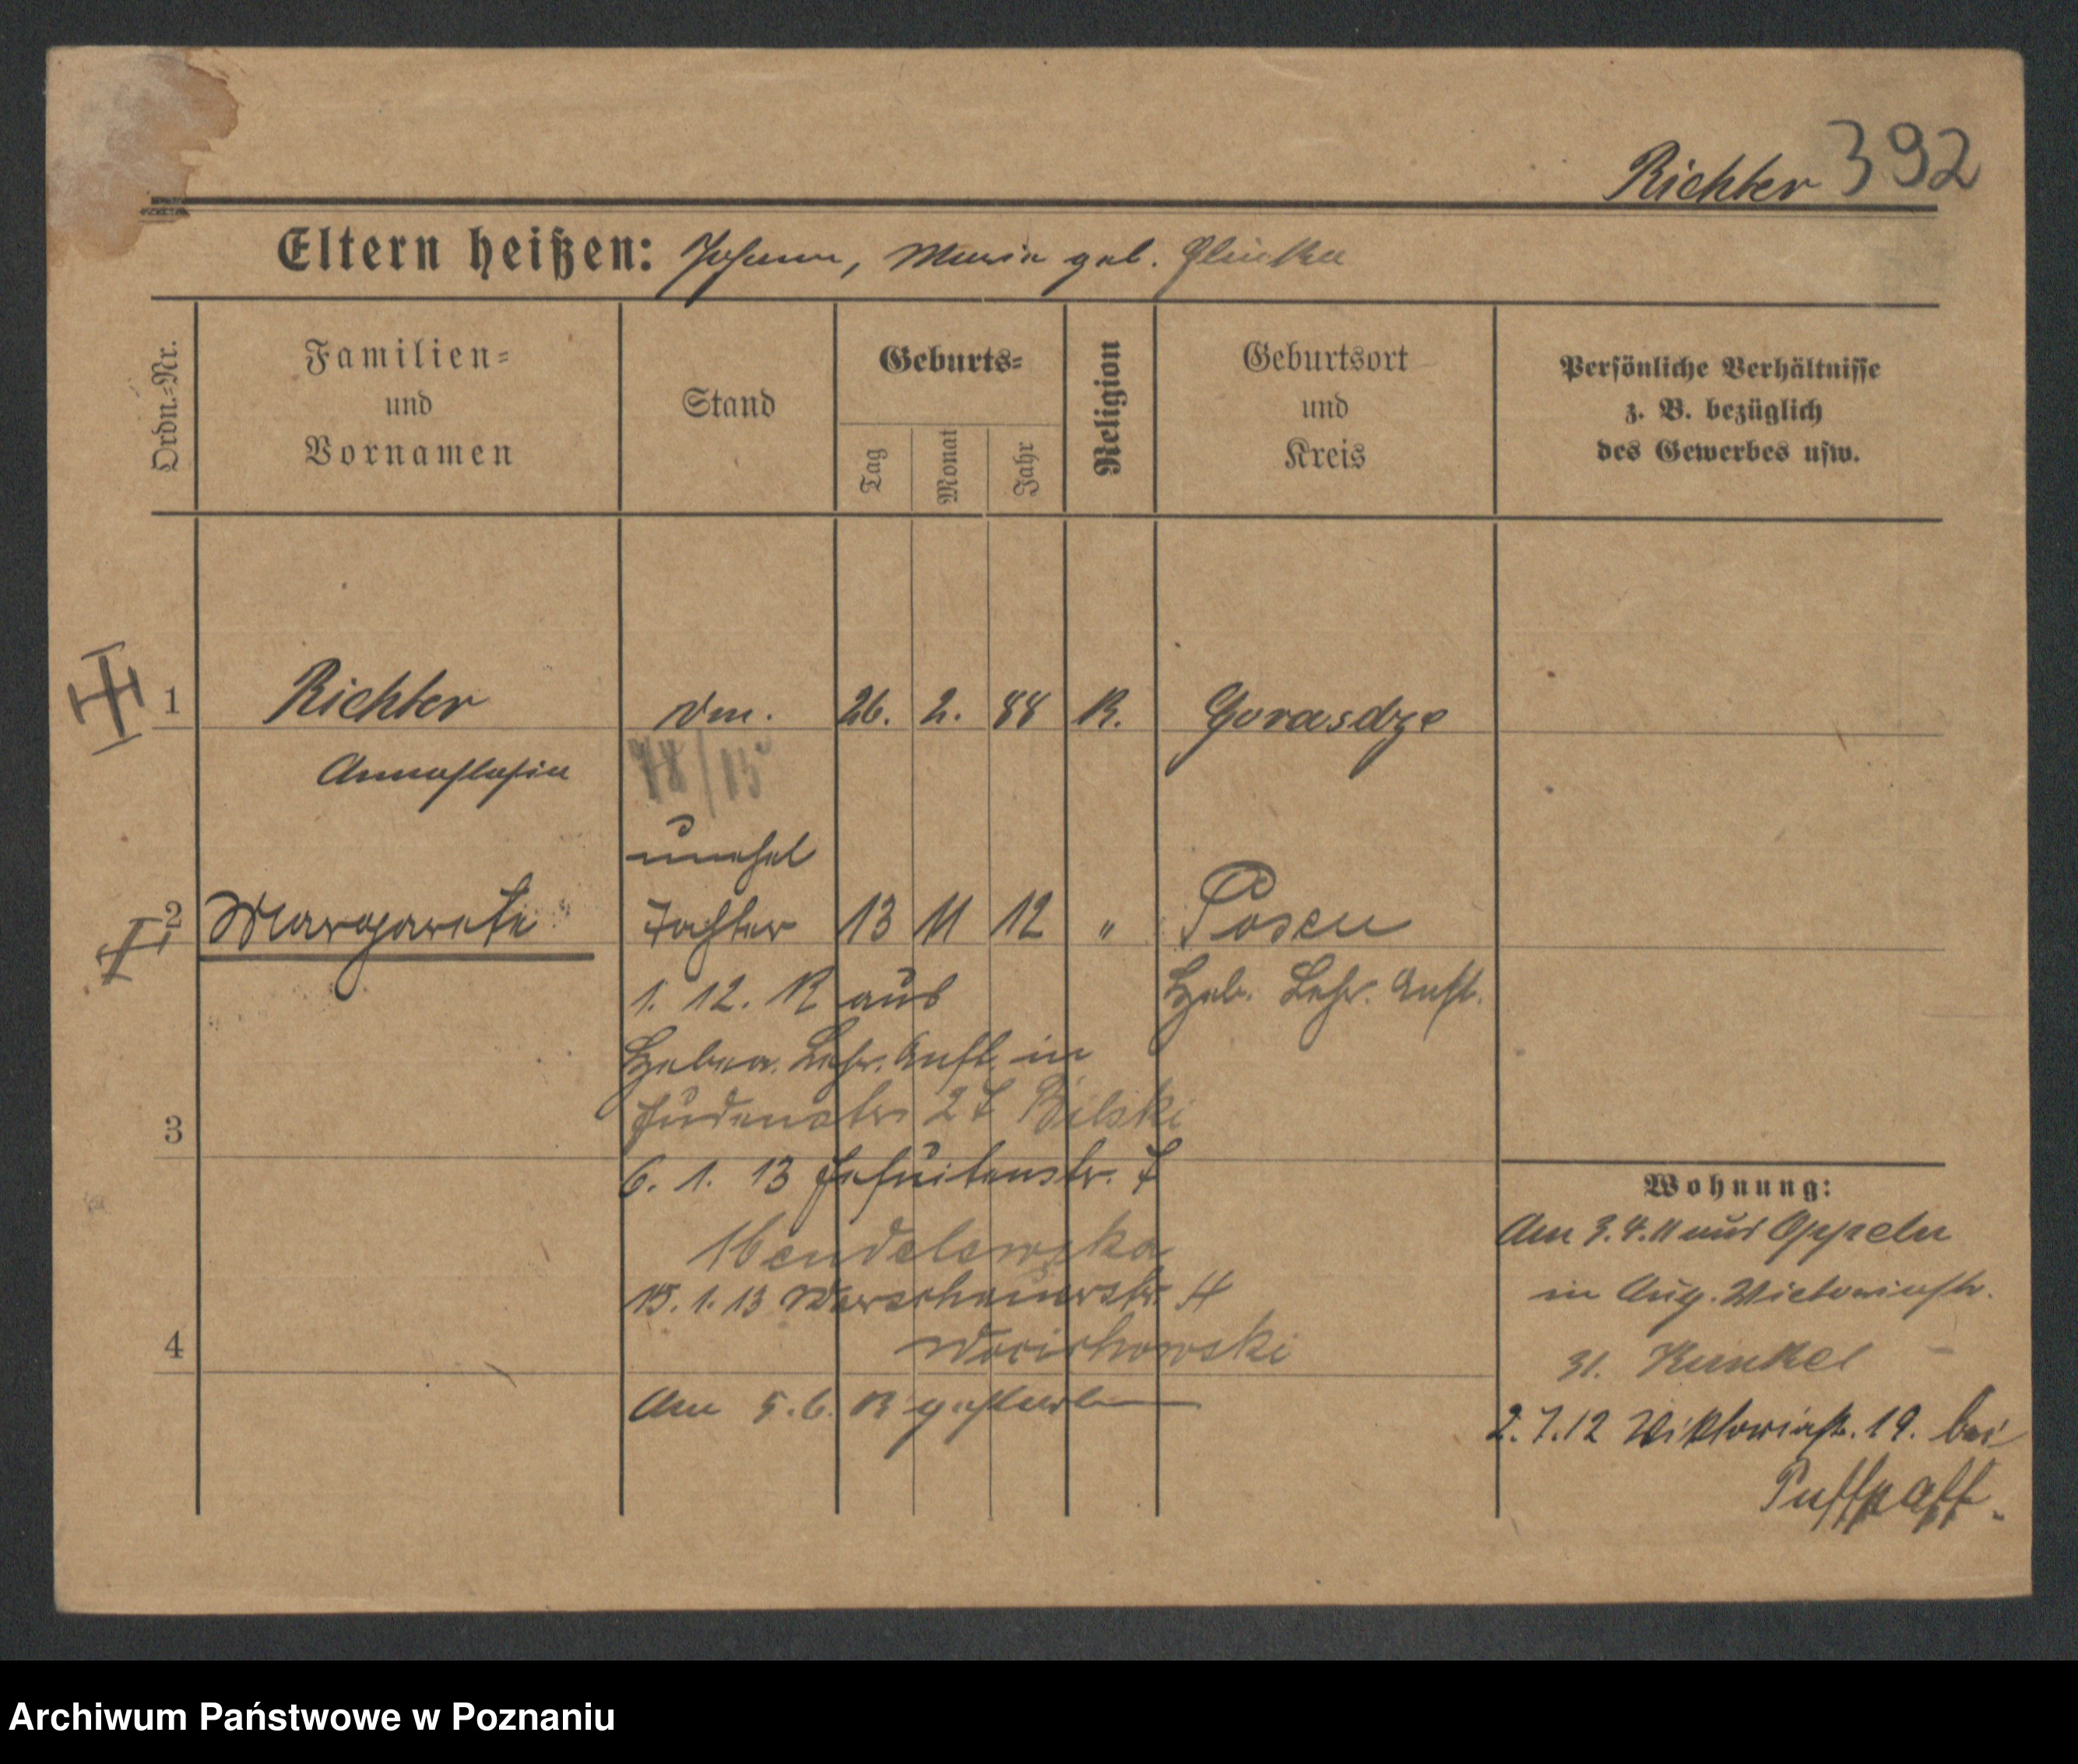 Richter 392
Eltern heißen: Johann, Maria geb. Glinka
Ordn.-Nr.
Familien-
und
Vornamen
Stand
Geburts-
Tag
Monat
Jahr
Religion
Geburtsort
und
Kreis
Persönliche Verhältnisse
z. B. bezüglich
des Gewerbes usw.
1 Richter Dm. 26. 2. 88 K. Gorasdze
Annastasia
78/15
unehel
2 Margarete Tochter 13 11 12 " Posen
Heb. Lehr. Anst.
1. 12. 12 aus
Hebea. Lehr. Anst. in
3 Judenstr 27 Bilski
6. 1. 13 Jesuitenstr. 7
Mendelewska
15. 1. 13 Warschauerstr.
4
Am 5. 6. 13 gestorben
Wohnung:
Am 3. 4. 11 aus Oppeln
in Aug. Victoriastr.
31. Kunkel
2. 7. 12 Viktoriastr. 19. bei
Puffpaff.
Archiwum Państwowe w Poznaniu